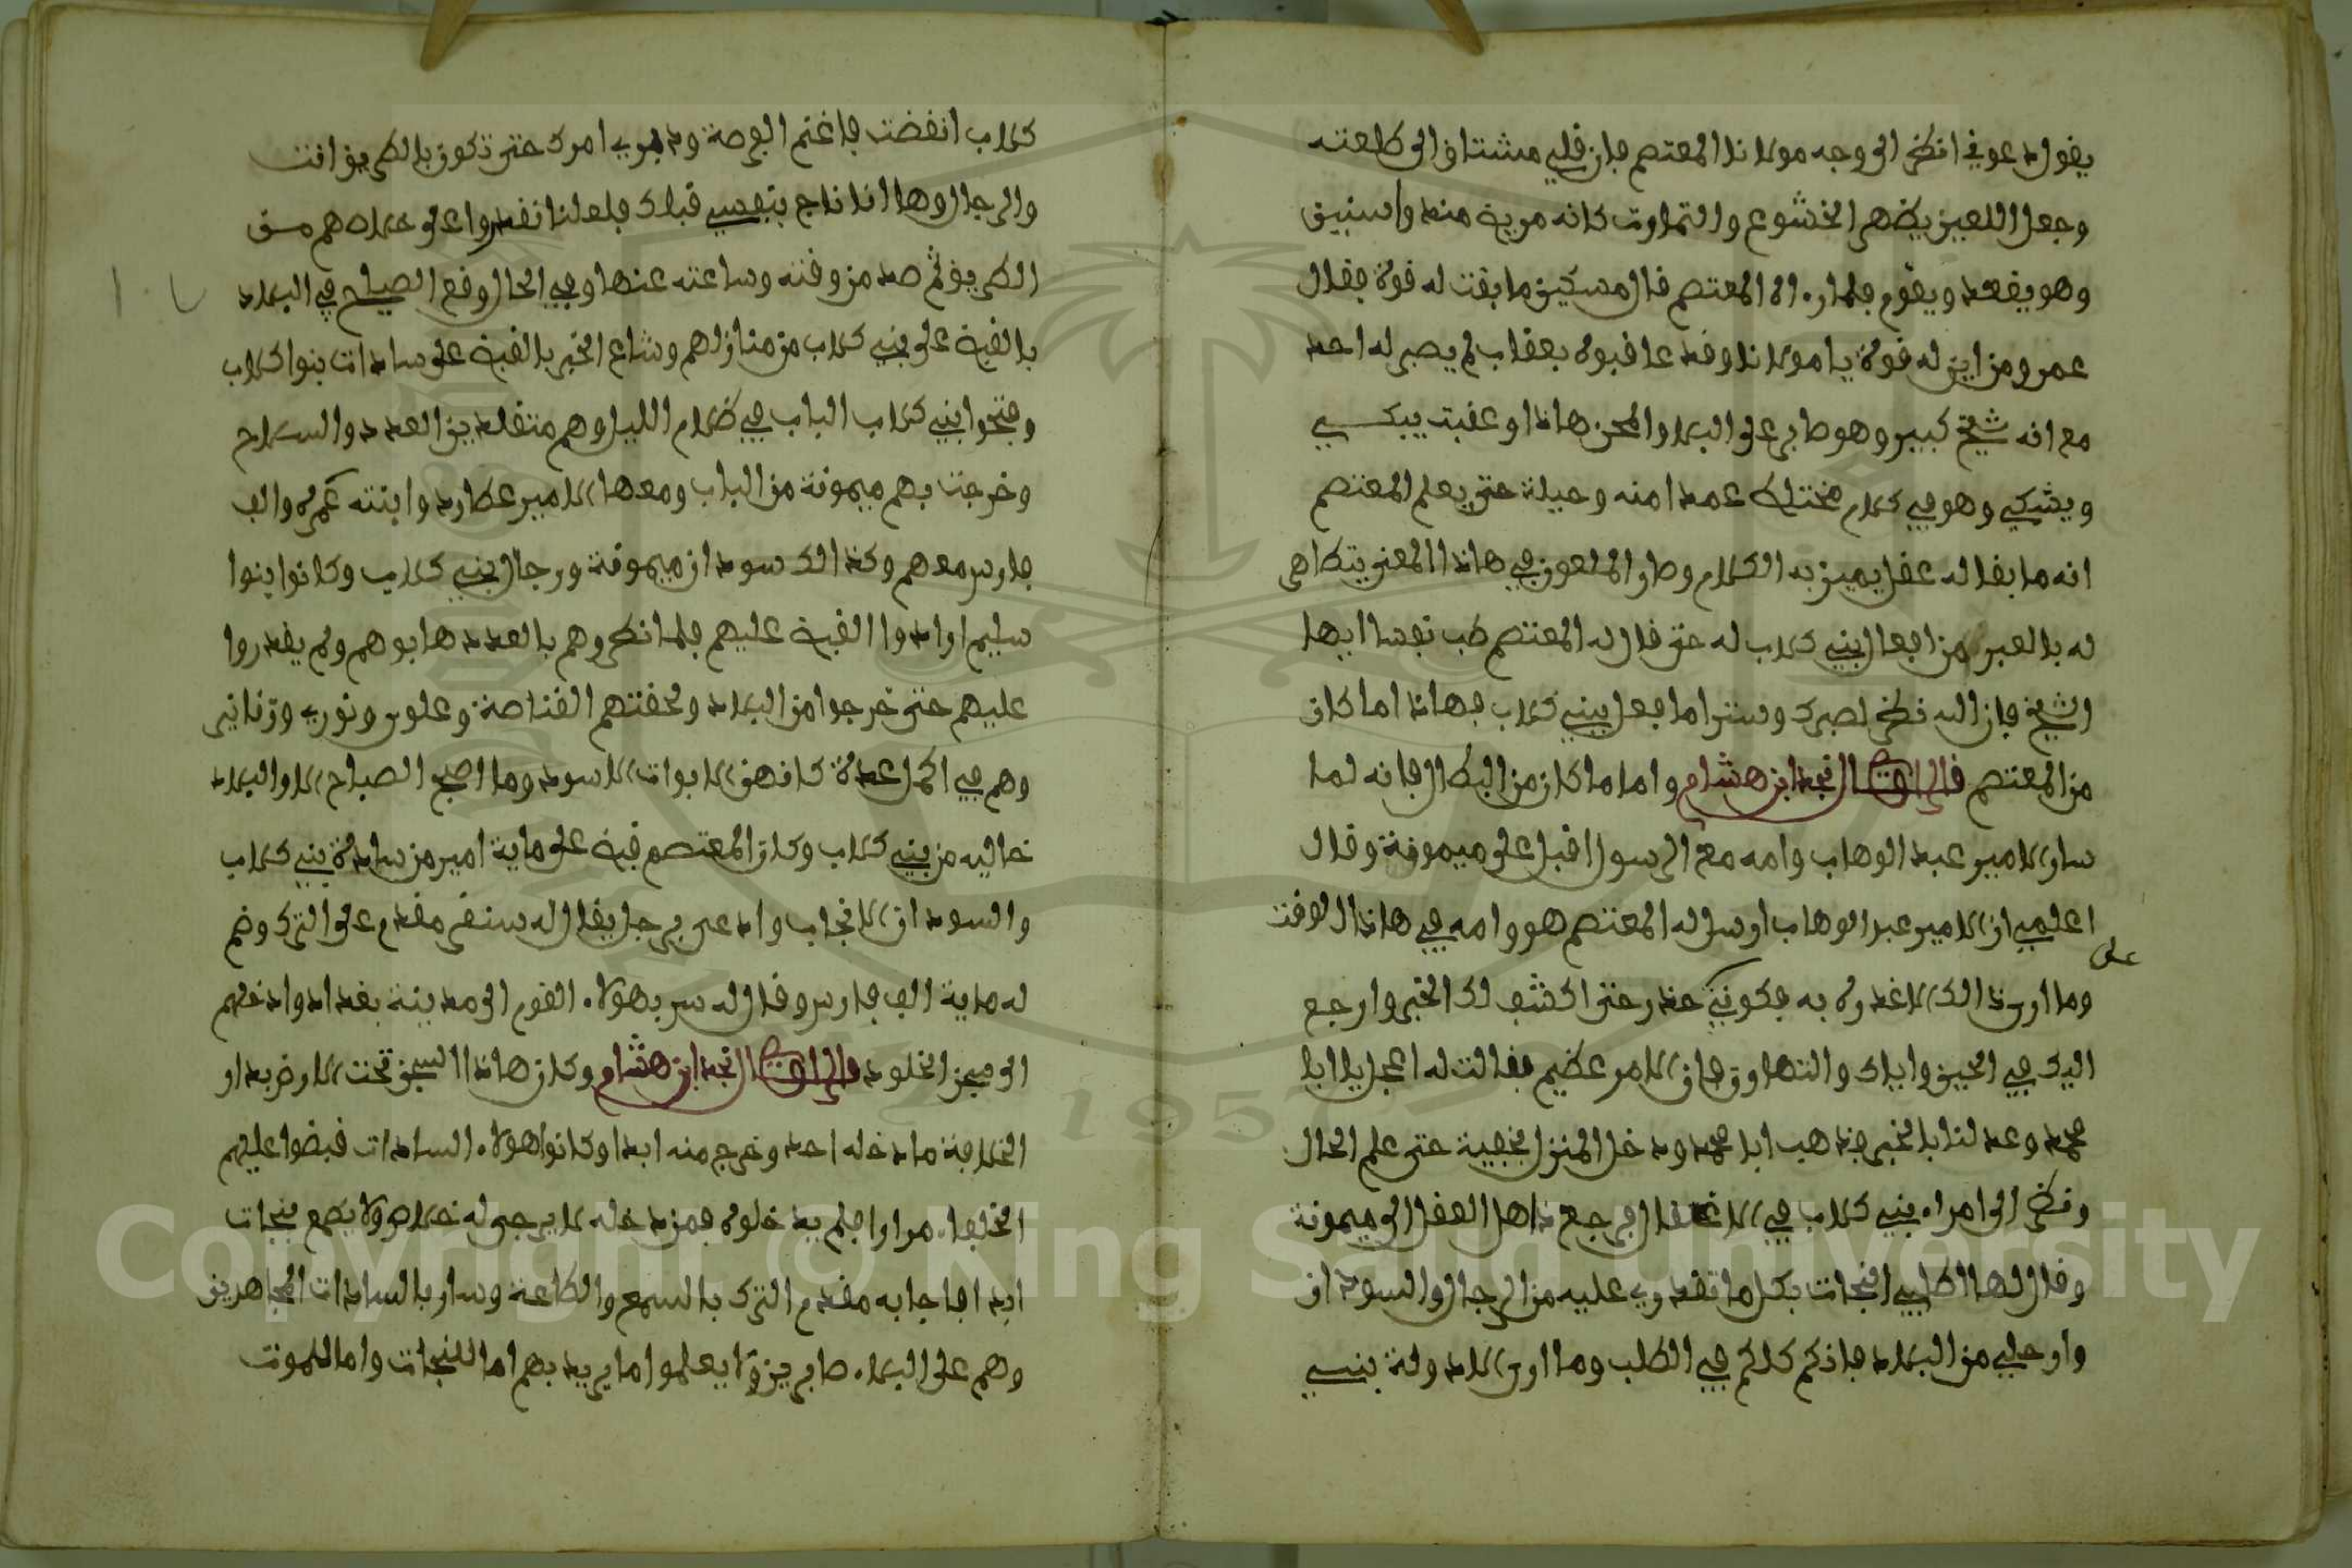 يقول دعوني انظر الى وجه مولانا المعتصم فان قلبي مشتاق الى طلعته
وجعل اللعين يظهر الخشوع والتماوت كانه مرية منه واستبين
وهو يقعد ويقوم فلما رءاه المعتصم قال مسكين ما بقت له قوة فقال
عمر ومن اين له قوة يا مولانا وقد عاقبوه بعقاب لم يصبر له احد
مع انه شيخ كبير وهو صابر على البلا والمحن هاذا وعقبت يبكي
ويشكي وهو في كلام مختلط عمدا منه وحيلة حتى يعلم المعتصم
انه ما بقا له عقل يميز به الكلام وصار الملعون في هاذا المعنى يتظاهر
له بالصبر من افعال بني كلاب له حتى قال له المعتصم طب نفسا ايها
الشيخ فان الله نظر لصبرك وسترا ما فعل ببني كلاب فهاذا ما كان
من المعتصم قال الراوي نجد ابن هشام واما ما كان من البطال فانه لما
سار الامير عبد الوهاب وامه مع الرسول اقبل على ميمونة وقال
اعلمي ان الامير عبد الوهاب ارسل له المعتصم هو وامه في هاذا الوقت
على
وما ارى ذالك الا غدرة به فكوني حذر حتى اكشف لك الخبر وارجع
اليك في الحين واياك والتهاون فان الامر عظيم فقالت له اعجل يا ابا
محمد وعد لنا بالخبر فذهب ابا محمد ودخل المنزل بخفية حتى علم الحال
ونظر الى امراء بني كلاب في الاغلال فرجع ذاهل العقل الى ميمونة
وقال لها اطلبي النجات بكل ما تقدري عليه من الرجال والسودان
وارحلي من البلاد فانكم كلكم في الطلب وما ارى الا دولة بني
كلاب انقضت فاغتم الفرصة ودبري امرك حتى تكون بالطريق انت
والرجال وها انا ناج بنفسي قبلك فلعلنا نقدروا على خلاصهم من
الطريق ثم صد من وقته وساعته عنها وفي الحال وقع الصياح في البلاد
بالقبة على بني كلاب من منازلهم وشاع الخبر بالقبة على سادات بنوا كلاب
وفتحوا بني كلاب الباب في ظلام الليل وهم متقلدين العدد والسلاح
وخرجت بهم ميمونة من الباب ومعها الامير عطارد وابنته غمرة والف
فارس معهم وكذالك سودان ميمونة ورجال بني كلاب وكانوا بنوا
سليم ارادوا القبة عليهم فلما نظروهم بالعدد هابوهم ولم يقدروا
عليهم حتى خرجوا من البلاد ولحقتهم القناصة وعلوس ونوري وزناتي
وهم في اكمل عدة كانهن الابوات الاسود وما اصبح الصباح الا والبلاد
خاليه من بني كلاب وكان المعتصم قبة على ماية امير من سادة بني كلاب
والسودان الانجاب وادعى برجل يقال له سنقر مقدم على الترك وضم
له ماية الف فارس وقال له سر بهولاء القوم الى مدينة بغداد وادخلهم
الى سجن الخلود قال الراوي نجد ابن هشام وكان هاذا السجن تحت الارض بدار
الخلافة ما دخله احد وخرج منه ابدا وكانوا هولاء السادات قبضوا عليهم
الخلفاء مرارا فلم يدخلوه فمن دخله لا يرجى له خلاص ولا يطمع بنجات
ابدا فاجابه مقدم الترك بالسمع والطاعة وسار بالسادات المجاهرين
وهم على البلاء صابرين ولا يعلموا ما يريد بهم اما للنجات واما للموت
Copyright © King Saud University
1957